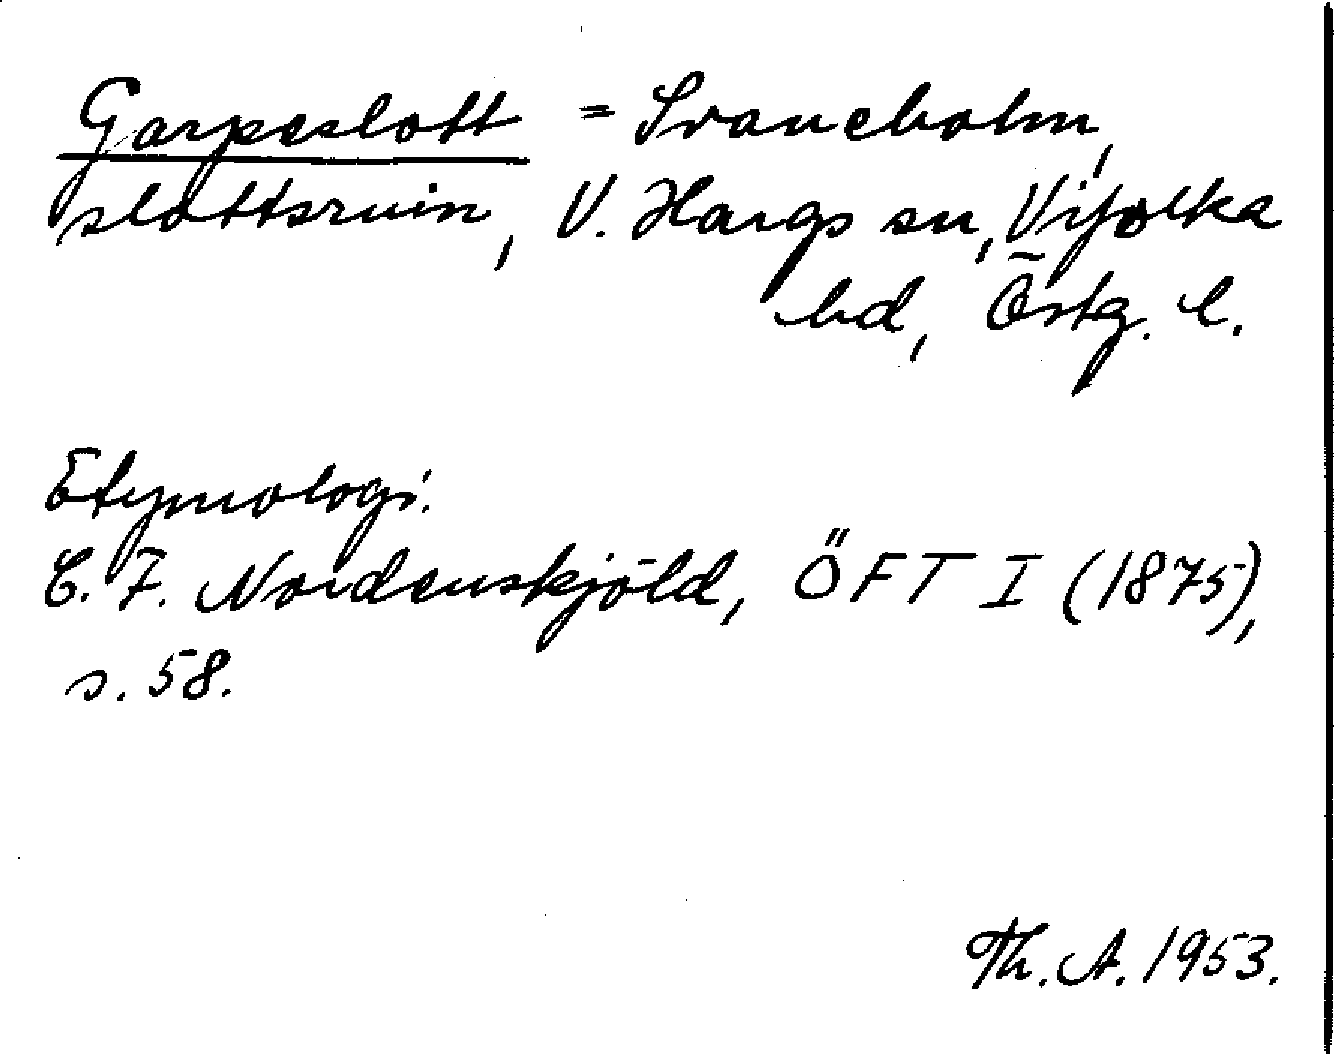 Garpeslott = Svaneholm,
slottsruin, V. Hargs sn, Vifolka
hd, Östg. l.
Etymologi.
C. F. Nordenskjöld, ÖFT I (1875),
s. 58.
Th. A. 1953.